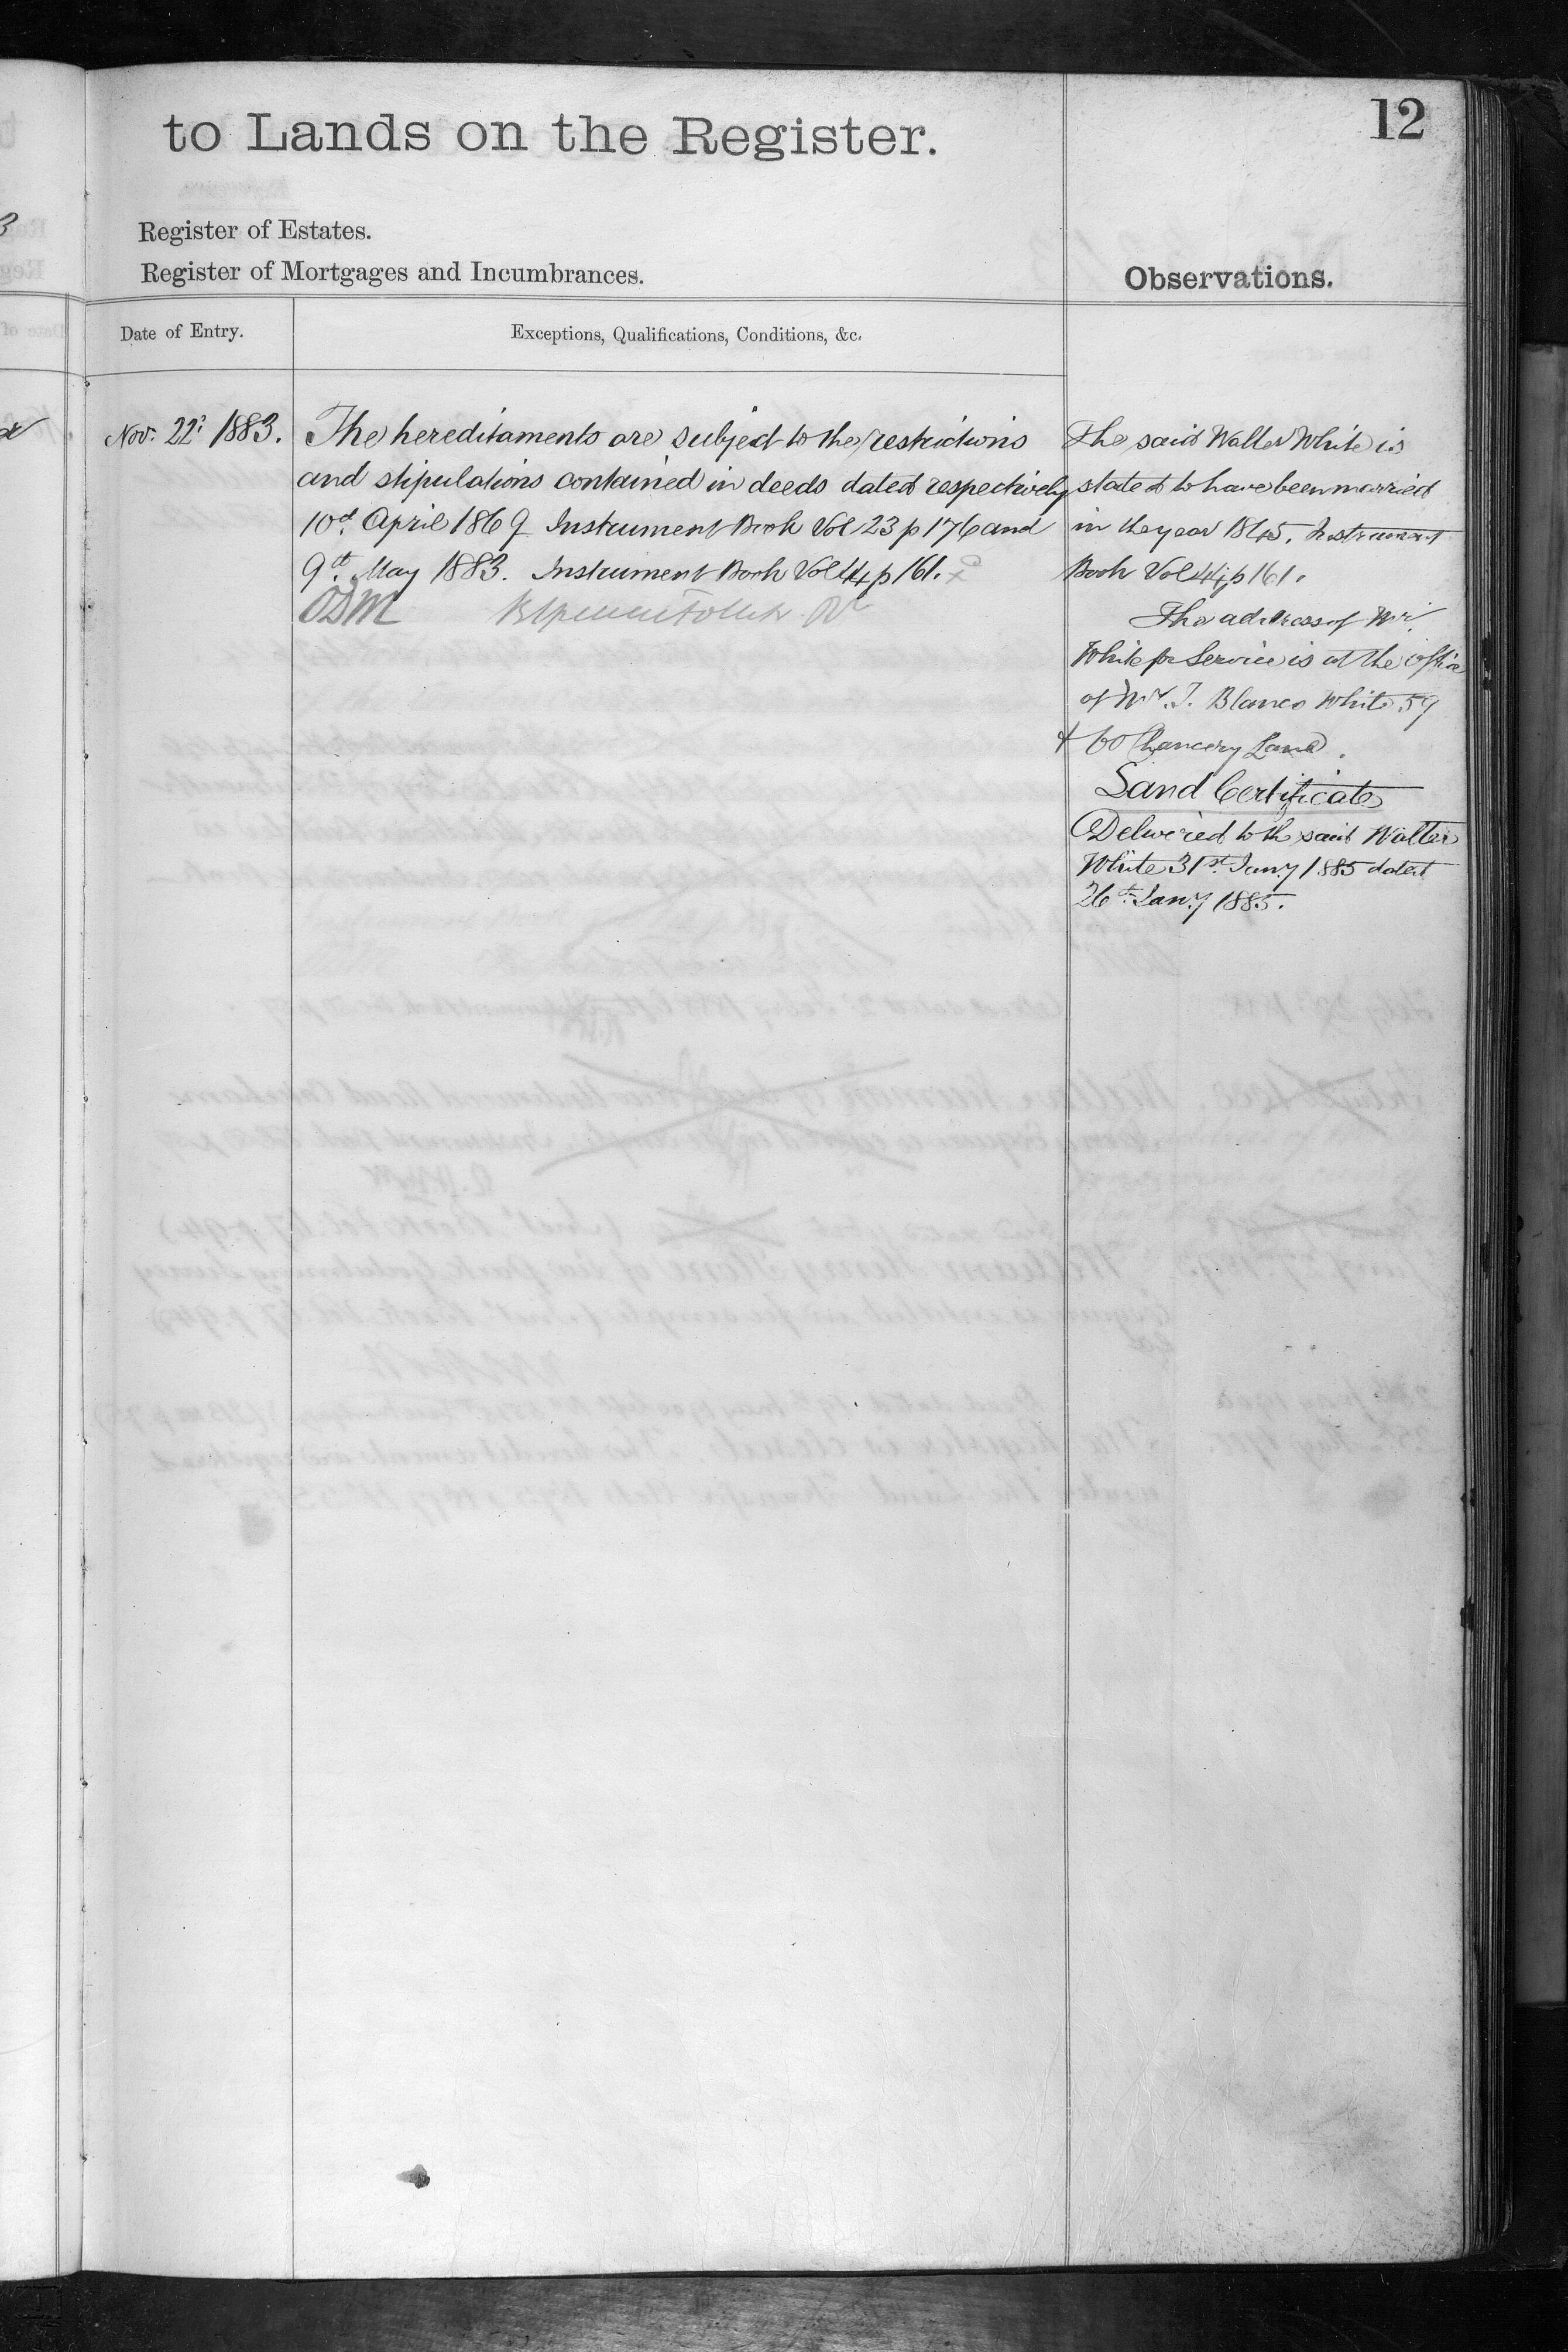 12
to Lands on the Register.
Register of Estates.
Register of Mortgages and Incumbrances.
Observations.
Date of Entry.
Exceptions, Qualifications, Conditions, &c.
Nov. 22d 1883.
The hereditaments are subject to the restrictions
and stipulations contained in deeds dated respectively
10th April 1869 Instrument Book Vol 23 p 176 and
9th May 1883. Instrument Book Vol 44 p 161.
ODM
The said Walter White is
stated to have been married
in the year 1845. Instrument
Book Vol 44 p 161.
The address of Mr.
White for Service is at the office
of Mr. T. Blanco White 59
& 60 Chancery Lane.
Land Certificate
Delivered to the said Walter
White 31st Jany 1885 dated
26th Jany 1885.